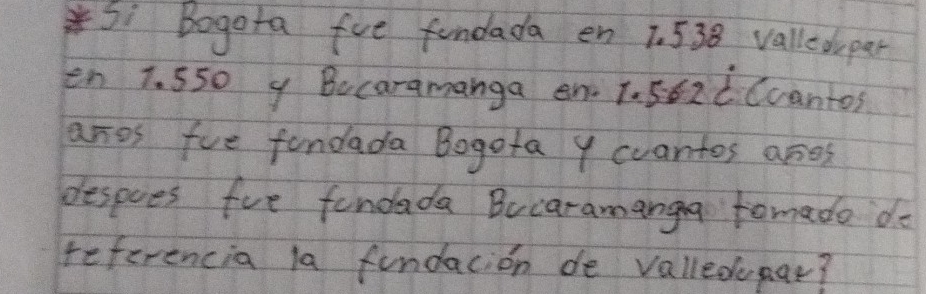 * Si Bogota fue fundada en 1.538 valledupar
en 1.550 y Bucaramanga en 1.562 ¿Cuantos
años fue fundada Bogota y cuantos años
despues fue fundada Bucaramanga tomado de
referencia la fundación de valledupar?